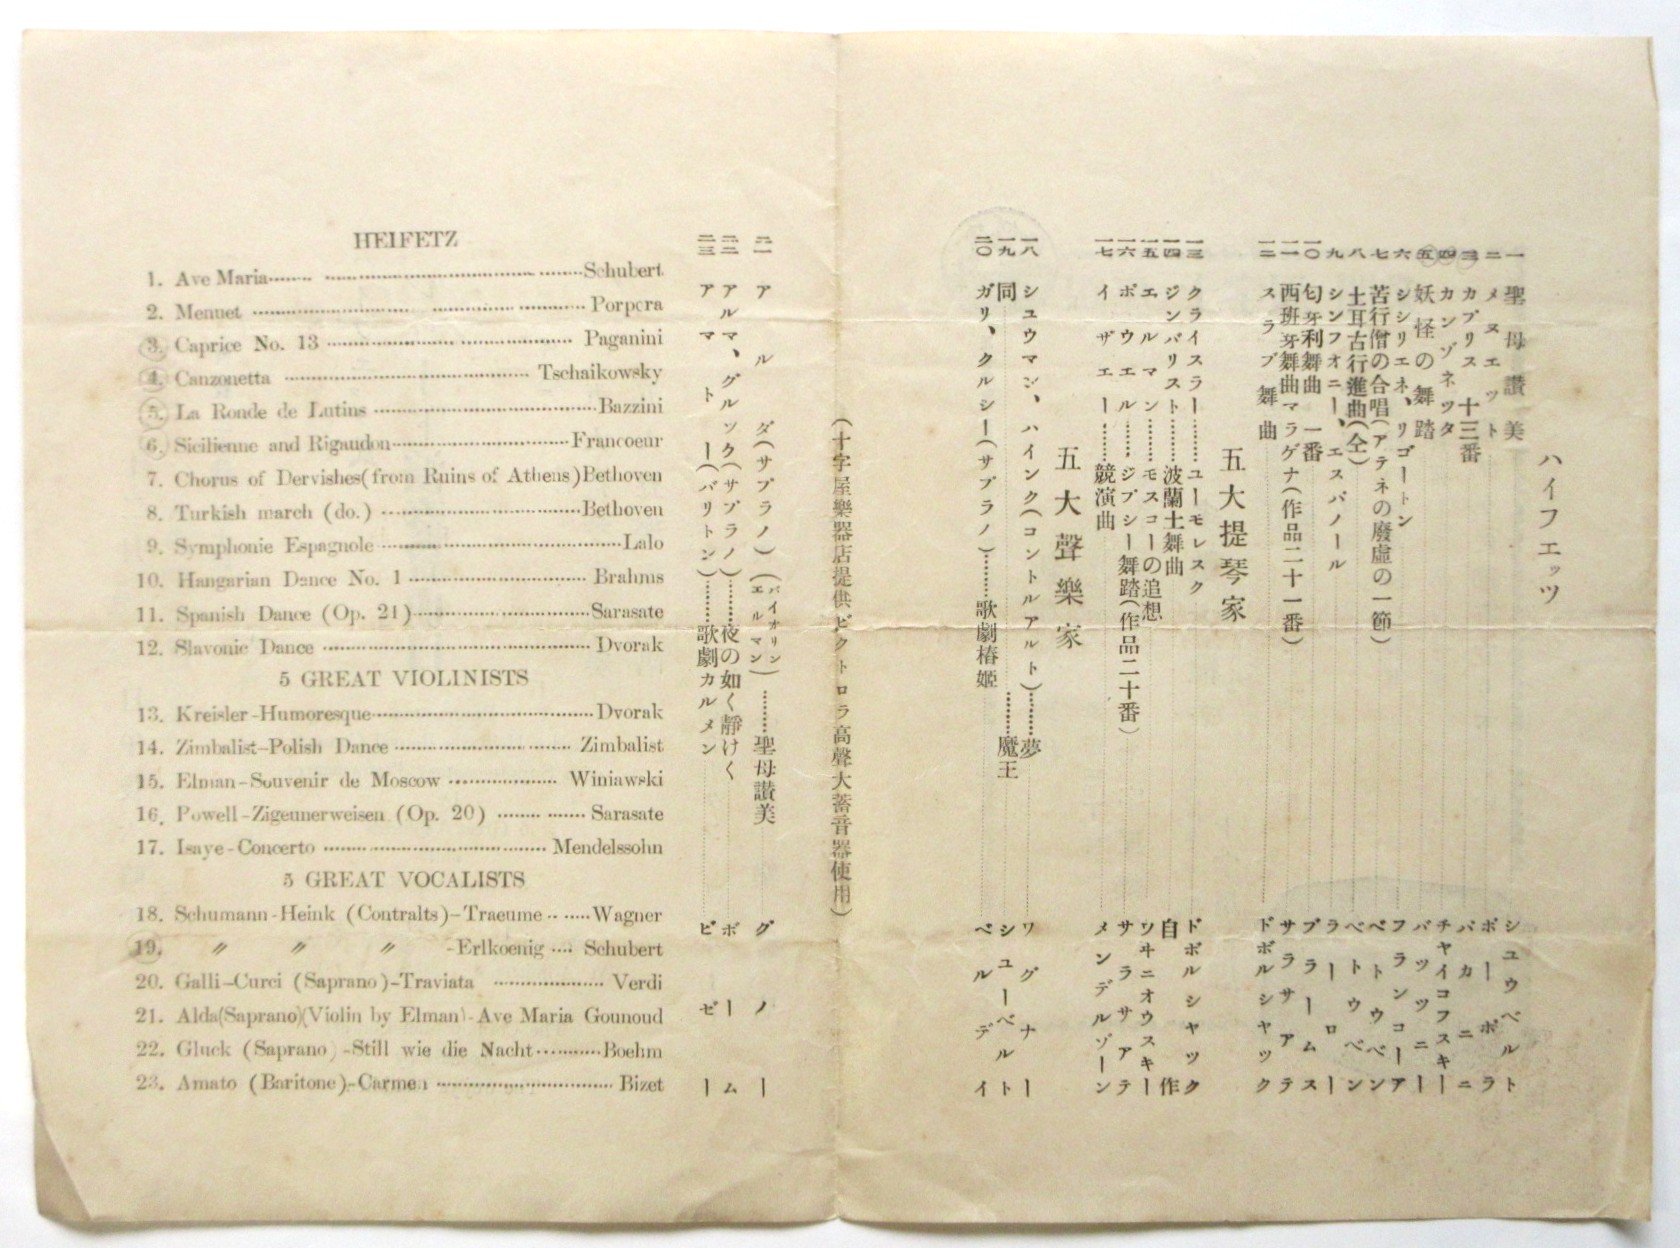 HEIFETZ
1. Ave Maria Schubert
2. Menuet Porpora
3. Caprice No. 13 Paganini
4. Canzonetta Tschaikowsky
5. La Ronde de Lutins Bazzini
6. Sicilienne and Rigaudon Francoeur
7. Chorus of Dervishes(from Ruins of Athens)Bethoven
8. Turkish march (do.) Bethoven
9. Symphonie Espagnole Lalo
10. Hangarian Dance No. 1 Brahms
11. Spanish Dance (Op. 21) Sarasate
12. Slavonic Dance Dvorak
5 GREAT VIOLINISTS
13. Kreisler-Humoresque Dvorak
14. Zimbalist-Polish Dance Zimbalist
15. Elman-Souvenir de Moscow Winiawski
16. Powell-Zigeunerweisen (Op. 20) Sarasate
17. Isaye-Concerto Mendelssohn
5 GREAT VOCALISTS
18. Schumann-Heink (Contralts)-Traeume Wagner
19. 〃 〃 〃 -Erlkoenig Schubert
20. Galli-Curci (Saprano)-Traviata Verdi
21. Alda(Saprano)(Violin by Elman)-Ave Maria Gounoud
22. Gluck (Saprano)-Still wie die Nacht Boehm
23. Amato (Baritone)-Carmen Bizet
ハイフエッツ
一 聖母讃美 シユウベルト
二 メヌエット ポーポラ
三 カプリス 十三番 パカニニ
四 カンゾネツタ チヤイコフスキー
五 妖怪の舞踏 バツツニー
六 シシリエネ、リゴートン フランコーア
七 苦行僧の合唱(アテネの廢虚の一節) ベトウベン
八 土耳古行進曲(仝) ベトウベン
九 シンフオニー、エスパノール ラーロー
一〇 匂牙利舞曲 一番 ブラームス
一一 西班牙舞曲マラゲナ(作品二十一番) サラサアテ
一二 スラブ舞曲 ドボルシヤツク
五大提琴家
一三 クライスラー……ユーモレスク ドボルシヤック
一四 ジンバリスト……波蘭土舞曲 自作
一五 エルマン……モスコーの追想 ワヰニオウスキー
一六 ポウエル……ジプシー舞踏(作品二十番) サラサアテ
一七 イザエー……競演曲 メンデルゾーン
五大聲樂家
一八 シユウマン、ハインク(コントルアルト)……夢 ワグナー
一九 同……魔王 シユーベルト
二〇 ガリ、クルシー(サプラノ)……歌劇椿姬 ベルデイ
(十字屋樂器店提供ビクトロラ高聲大蓄音器使用)
二一 アルダ(サプラノ)(バイオリン エルマン)……聖母讃美 グノー
二二 アルマ、グルック(サプラノ)……夜の如く靜けく ボーム
二三 アマトー(バリトン)……歌劇カルメン ビゼー